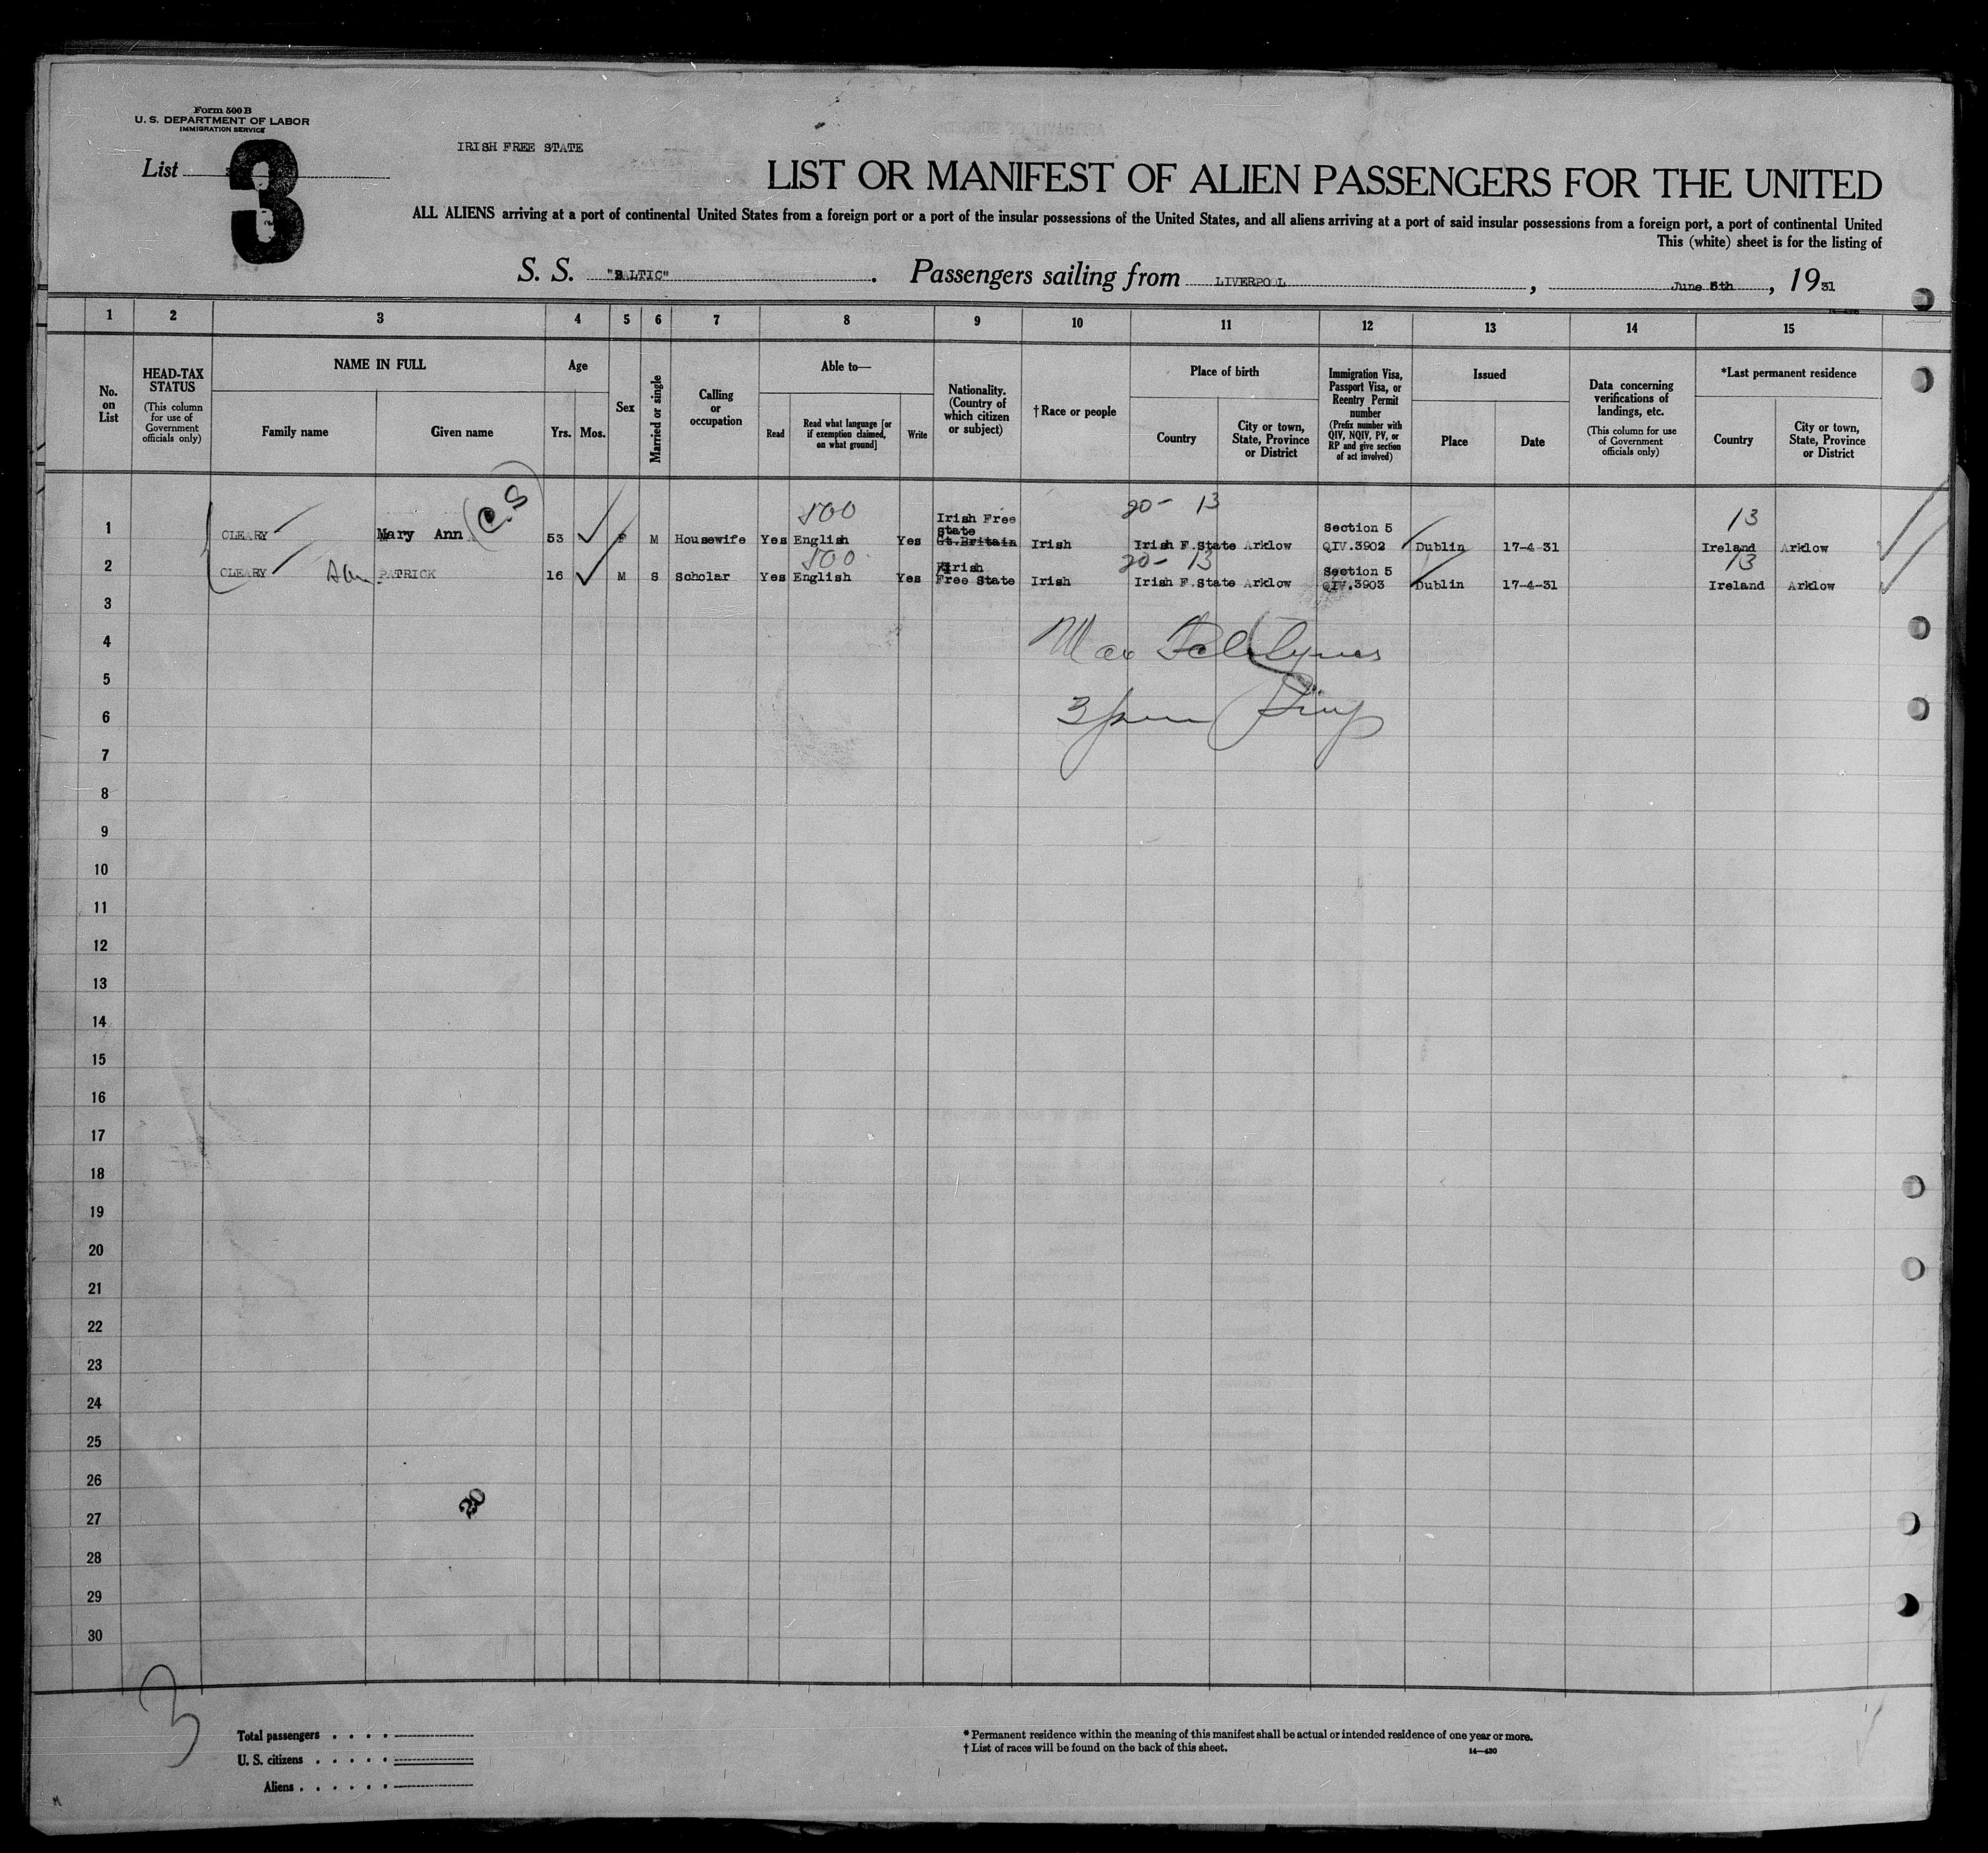 Form 500 B
U. S. DEPARTMENT OF LABOR
IMMIGRATION SERVICE
List
3
IRISH FREE STATE
LIST OR MANIFEST OF ALIEN PASSENGERS FOR THE UNITED
ALL ALIENS arriving at a port of continental United States from a foreign port or a port of the insular possessions of the United States, and all aliens arriving at a port of said insular possessions from a foreign port, a port of continental United
This (white) sheet is for the listing of
S. S. "BALTIC". Passengers sailing from LIVERPOOL, June 5th, 1931
1 2 3 4 5 6 7 8 9 10 11 12 13 14 15
No. on List
HEAD-TAX STATUS
(This column for use of Government officials only)
NAME IN FULL
Family name
Given name
Age
Yrs. Mos.
Sex
Married or single
Calling or occupation
Able to—
Read
Read what language [or if exemption claimed, on what ground]
Write
Nationality. (Country of which citizen or subject)
†Race or people
Place of birth
Country
City or town, State, Province or District
Immigration Visa, Passport Visa, or Reentry Permit number
(Prefix number with QIV, NQIV, PV, or RP and give section of act involved)
Issued
Place
Date
Data concerning verifications of landings, etc.
(This column for use of Government officials only)
*Last permanent residence
Country
City or town, State, Province or District
500 20- 13 13
1 CLEARY Mary Ann (C.S) 53 F M Housewife Yes English Yes Irish Free State Gt.Britain Irish Irish F.State Arklow Section 5 QIV.3902 Dublin 17-4-31 Ireland Arklow
500 20- 13 13
2 CLEARY PATRICK 16 M S Scholar Yes English Yes Irish Free State Irish Irish F.State Arklow Section 5 QIV.3903 Dublin 17-4-31 Ireland Arklow
3
4
5
6
7
8
9
10
11
12
13
14
15
16
17
18
19
20
21
22
23
24
25
26
20
27
28
29
30
3
Total passengers
U. S. citizens
Aliens
* Permanent residence within the meaning of this manifest shall be actual or intended residence of one year or more.
† List of races will be found on the back of this sheet.
14—430